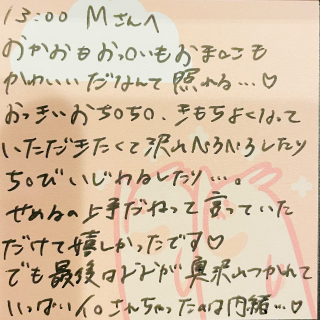 13:00 Mさんへ
おかおもおっ○いもおま○こも
かわいいだなんて照れる…♡
おっきいおち○ち○、きもちよくなって
いただきたくて沢山ぺろぺろしたり
ち○びいじわるしたり…。
せめるの上手だねって言っていた
だけて嬉しかったです♡
でも最後は が奥沢山つかれて
いっぱいイ○さんちゃったのは内緒…♡